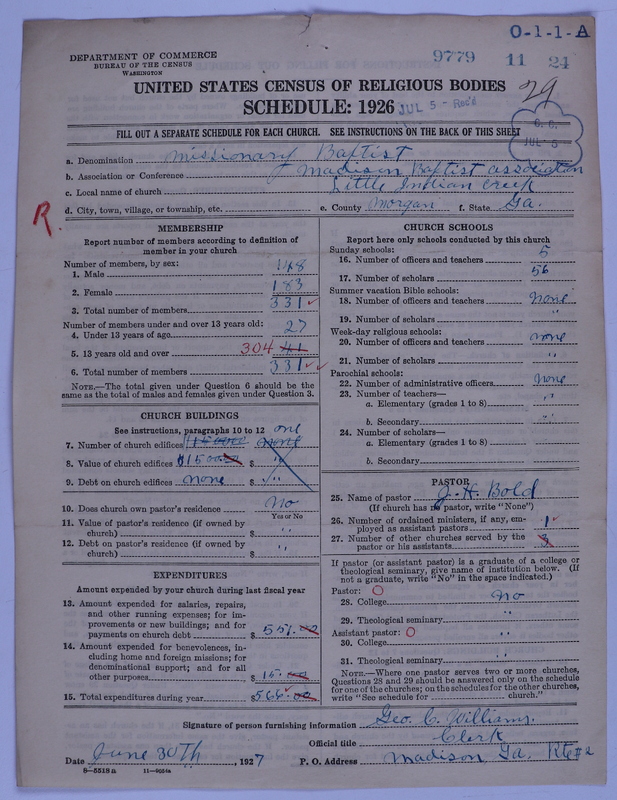 O-1-1-A
DEPARTMENT OF COMMERCE
BUREAU OF THE CENSUS
WASHINGTON
9779 11 24
29
UNITED STATES CENSUS OF RELIGIOUS BODIES
SCHEDULE: 1926
JUL 5 - Rec'd
FILL OUT A SEPARATE SCHEDULE FOR EACH CHURCH. SEE INSTRUCTIONS ON THE BACK OF THIS SHEET
JUL 5
a. Denomination Missionary Baptist
b. Association or Conference Madison Baptist association
c. Local name of church Little Indian Creek
d. City, town, village, or township, etc. e. County Morgan f. State Ga.
R.
MEMBERSHIP
Report number of members according to definition of
member in your church
Number of members, by sex:
1. Male 148
2. Female 183
3. Total number of members 331
Number of members under and over 13 years old:
4. Under 13 years of age 27
5. 13 years old and over 304 41
6. Total number of members 331
NOTE.—The total given under Question 6 should be the
same as the total of males and females given under Question 3.
CHURCH BUILDINGS
See instructions, paragraphs 10 to 12 one
7. Number of church edifices none
8. Value of church edifices $1500 $ "
9. Debt on church edifices none $ "
10. Does church own pastor's residence No
Yes or No
11. Value of pastor's residence (if owned by
church) $ "
12. Debt on pastor's residence (if owned by
church) $ "
EXPENDITURES
Amount expended by your church during last fiscal year
13. Amount expended for salaries, repairs,
and other running expenses; for im-
provements or new buildings; and for
payments on church debt $551.00
14. Amount expended for benevolences, in-
cluding home and foreign missions; for
denominational support; and for all
other purposes $15.00
15. Total expenditures during year $566.00
CHURCH SCHOOLS
Report here only schools conducted by this church
Sunday schools:
16. Number of officers and teachers 5
17. Number of scholars 56
Summer vacation Bible schools:
18. Number of officers and teachers none
19. Number of scholars "
Week-day religious schools:
20. Number of officers and teachers none
21. Number of scholars "
Parochial schools:
22. Number of administrative officers none
23. Number of teachers—
a. Elementary (grades 1 to 8) "
b. Secondary "
24. Number of scholars—
a. Elementary (grades 1 to 8)
b. Secondary
PASTOR
25. Name of pastor J. H. Bold
(If church has no pastor, write "None")
26. Number of ordained ministers, if any, em-
ployed as assistant pastors 1
27. Number of other churches served by the
pastor or his assistants 3
If pastor (or assistant pastor) is a graduate of a college or
theological seminary, give name of institution below. (If
not a graduate, write "No" in the space indicated.)
Pastor: O
28. College No
29. Theological seminary "
Assistant pastor: O
30. College "
31. Theological seminary "
NOTE.—Where one pastor serves two or more churches,
Questions 28 and 29 should be answered only on the schedule
for one of the churches; on the schedules for the other churches,
write "See schedule for church."
Signature of person furnishing information Geo. C. Williams.
Official title Clerk
Date June 30th, 1927 P. O. Address Madison Ga. Rte #2
8-5518a 11-9034a